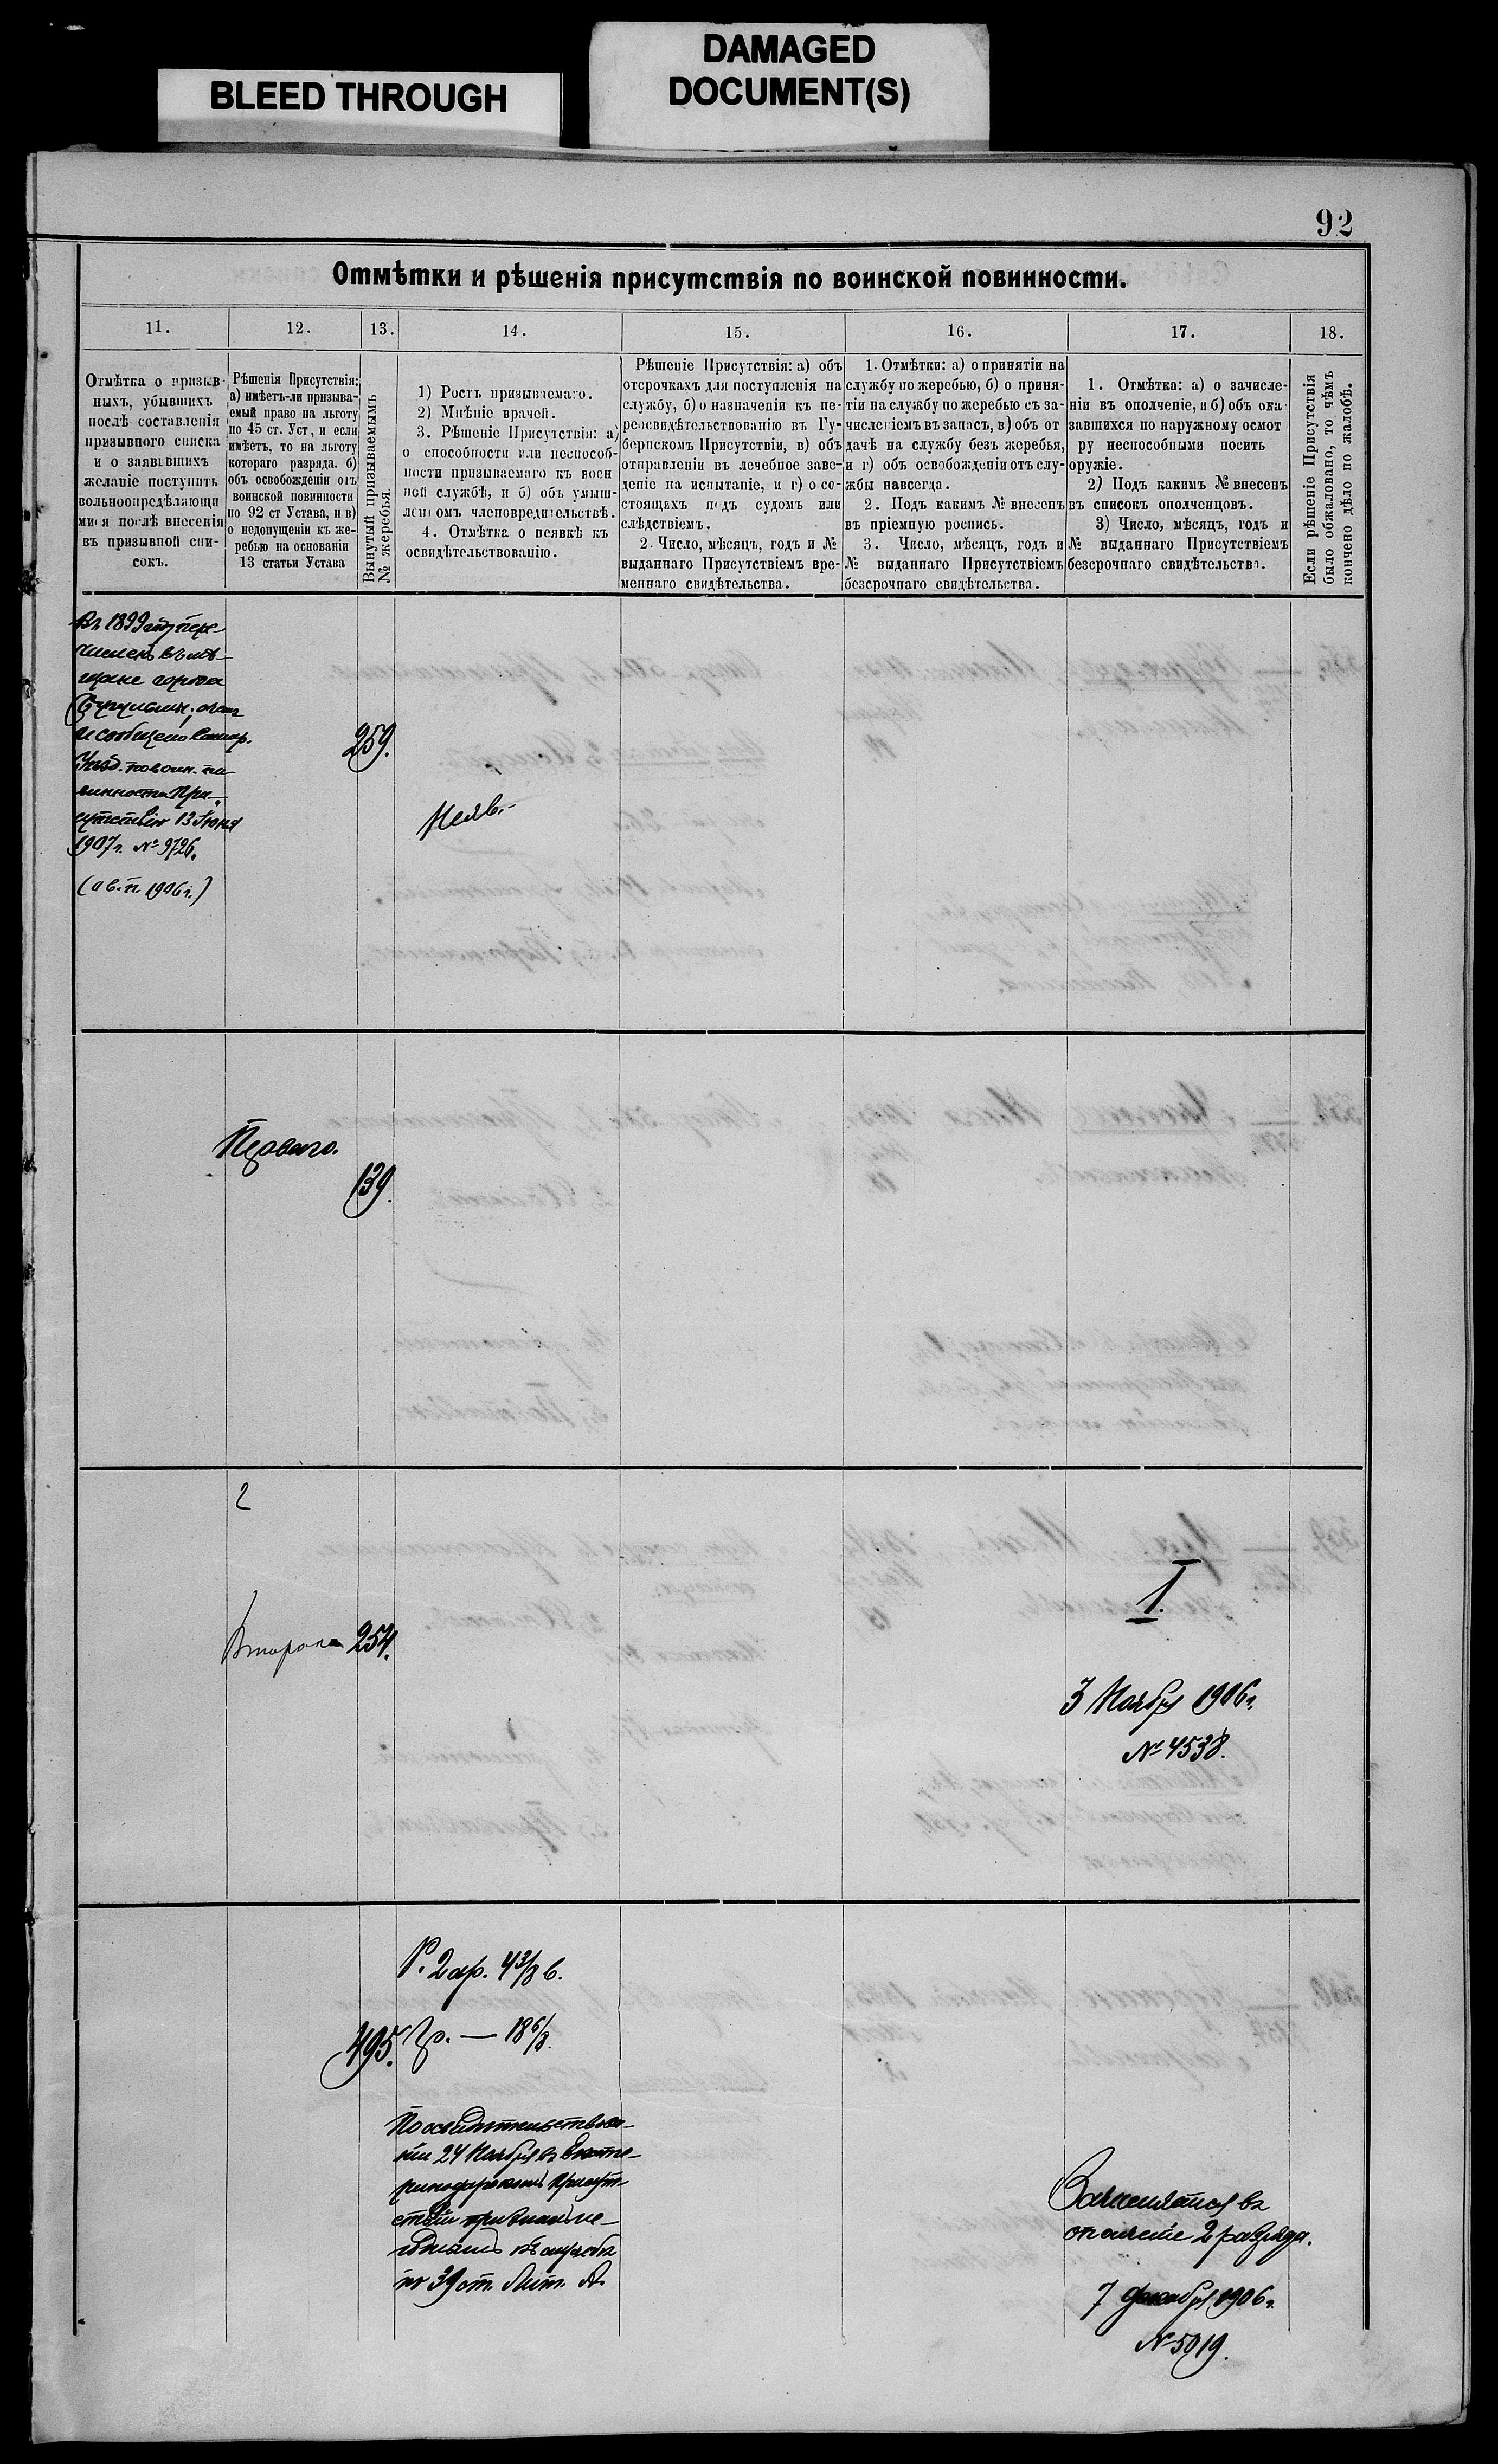 BLEED THROUGH
DAMAGED
DOCUMENT(S)
92
Отмѣтки и рѣшенія присутствія по воинской повинности.
11.
12.
13.
14.
15.
16.
17.
18.
Отмѣтка о призыв-
ныхъ, убывшихъ
послѣ составленія
призывного списка
и о заявившихъ
желаніе поступить
вольноопредѣляющи
мися послѣ внесенія
въ призывной спи-
сокъ.
Рѣшенія Присутствія:
а) имѣетъ-ли призыва-
емый право на льготу
по 45 ст. Уст, и если
имѣетъ, то на льготу
котораго разряда. б)
объ освобожденіи отъ
воинской повинности
по 92 ст Устава, и в)
о недопущеніи къ же-
ребью на основаніи
13 статьи Устава
Вынутый призываемымъ
№ жеребья.
1) Ростъ призываемаго.
2) Мнѣніе врачей.
3. Рѣшеніе Присутствія: а)
о способности или неспособ-
ности призываемаго къ воен
ной службѣ, и б) объ умыш-
ленномъ членовредительствѣ.
4. Отмѣтка о неявкѣ къ
освидѣтельствованію.
Рѣшеніе Присутствія: а) объ
отсрочкахъ для поступленія на
службу, б) о назначеніи къ пе-
реосвидѣтельствованію въ Гу-
бернскомъ Присутствіи, в) объ
отправленіи въ лечебное заве-
деніе на испытаніе, и г) о со-
стоящихъ подъ судомъ или
слѣдствіемъ.
2. Число, мѣсяцъ, годъ и №
выданнаго Присутствіемъ вре-
меннаго свидѣтельства.
1. Отмѣтки: а) о принятіи на
службу по жеребью, б) о приня-
тіи на службу по жеребью съ за-
численіемъ въ запасъ, в) объ от
дачѣ на службу безъ жеребья,
и г) объ освобожденіи отъ слу-
жбы навсегда.
2. Подъ какимъ № внесенъ
въ пріемную роспись.
3. Число, мѣсяцъ, годъ и
№ выданнаго Присутствіемъ
безсрочнаго свидѣтельства.
1. Отмѣтка: а) о зачисле-
ніи въ ополченіе, и б) объ ока
завшихся по наружному осмот
ру неспособными носить
оружіе.
2) Подъ какимъ № внесенъ
въ списокъ ополченцовъ.
3) Число, мѣсяцъ, годъ и
№ выданнаго Присутствіемъ
безсрочнаго свидѣтельства.
Если рѣшеніе Присутствія
было обжаловано, то чѣмъ
кончено дѣло по жалобѣ.
Въ 1899 году пере
численъ въ мѣ-
щане города
и сообщено
Уѣзд. по воин. по
винности При-
сутствію 13 Іюня
1907 г. № 9726.
(а в. п. 1906 г.)
259.
Неяв.
Перваго.
139.
2
Второго
254.
I.
3 Ноября 1906 г.
№ 4538.
495.
Р. 2 ар. 4 3/8 в.
Гр. — 18 6/8.
По освидѣтельствова-
нію 24 Ноября въ Екате-
ринодарскомъ Присут-
ствіи признанъ не-
годнымъ къ службѣ
по 39 ст. Лит. А.
Зачисляется въ
ополченіе 2 разряда.
7 Декабря 1906 г.
№ 5019.